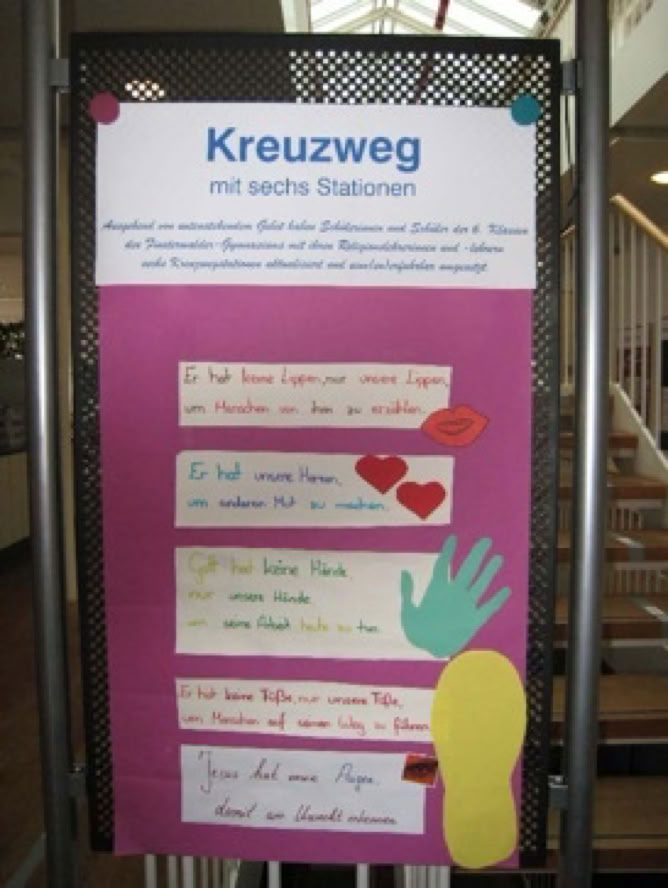 Kreuzweg
mit sechs Stationen
Ausgehend von untenstehendem Gebet haben Schülerinnen und Schüler der 6. Klassen
des Finsterwalder-Gymnasiums mit ihren Religionslehrerinnen und -lehrern
sechs Kreuzwegstationen aktualisiert und umgesetzt
Er hat keine Lippen, nur unsere Lippen,
um Menschen von ihm zu erzählen.
Er hat unsere Herzen,
um anderen Mut zu machen.
Gott hat keine Hände,
nur unsere Hände,
um seine Arbeit heute zu tun.
Er hat keine Füße, nur unsere Füße,
um Menschen auf seinen Weg zu führen.
Jesus hat meine Augen,
damit wir Unrecht erkennen